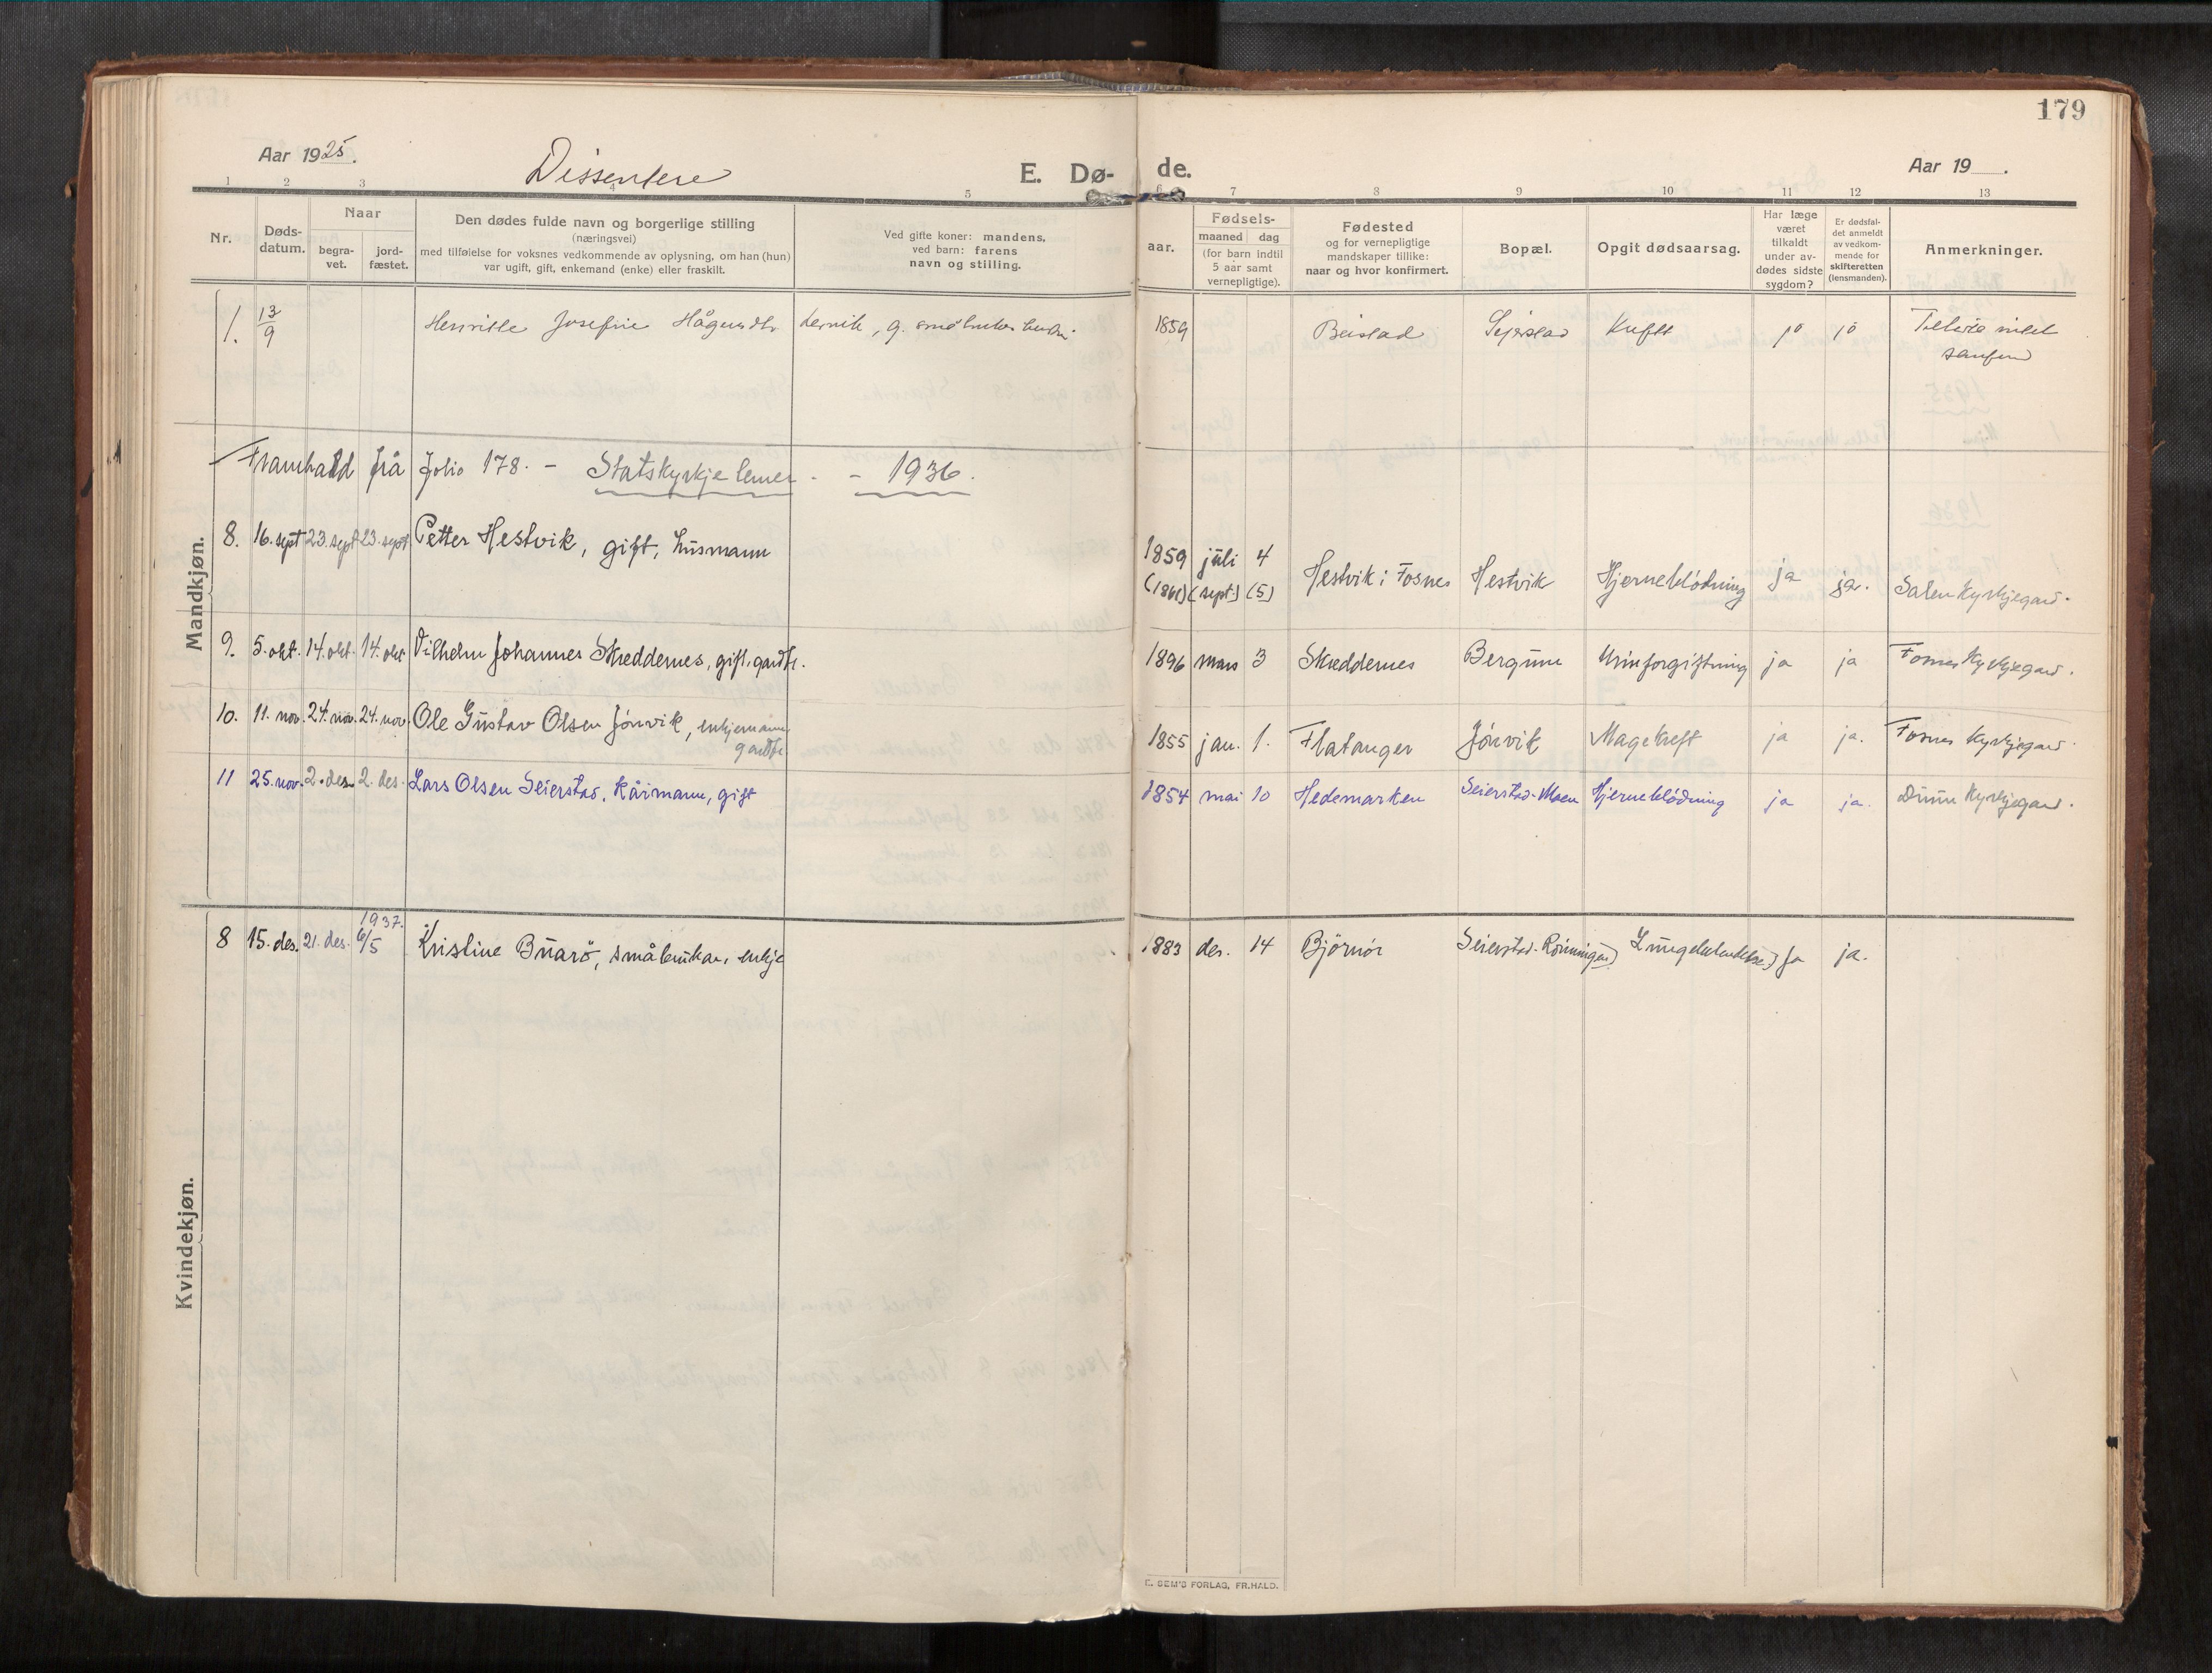 179
Aar 1925.
Dissentere
E. Dø- de.
Aar 19 .
1 2 3 4 5 6 7 8 9 10 11 12 13
Nr.
Døds-
datum.
Naar
begra-
vet.
jord-
fæstet.
Den dødes fulde navn og borgerlige stilling
(næringsvei)
med tilføielse for voksnes vedkommende av oplysning, om han (hun)
var ugift, gift, enkemand (enke) eller fraskilt.
Ved gifte koner: mandens,
ved barn: farens
navn og stilling.
aar.
Fødsels-
maaned dag
(for barn indtil
5 aar samt
vernepligtige).
Fødested
og for vernepligtige
mandskaper tillike:
naar og hvor konfirmert.
Bopæl.
Opgit dødsaarsag.
Har læge
været
tilkaldt
under av-
dødes sidste
sygdom?
Er dødsfal-
det anmeldt
av vedkom-
mende for
skifteretten
(lensmanden).
Anmerkninger.
1. 13/9 Josefine 1859 Beistad Kreft ja ja
Framhald frå folio 178. - Statskyrkjelemer. - 1936.
Mandkjøn.
8. 16. sept 23. sept 23. sept Petter Hestvik, gift, husmann 1859 juli 4 Hestvik i Fosnes Hestvik Hjerneblödning ja ja. Salen Kyrkjegard.
(1861) (sept.) (5)
9. 5. okt. 14. okt. 14. okt Vilhelm Johannes Skreddernes, gift, gardbr. 1896 mars 3 Skreddernes Urinforgiftning ja ja Fosnes Kyrkjegard.
10. 11. nov. 24. nov. 24. nov. Ole Gustav Olsen Jönvik, enkjemann, 1855 jan. 1. Flatanger Jönvik Magekreft ja ja. Fosnes Kyrkjegard.
gardbr.
11 25. nov. 2. des. 2. des. Lars Olsen Seierstad, Kårmann, gift 1854 mai 10 Hedemarken Seierstad-Moen Hjerneblödning ja ja. Duun Kyrkjegard.
Kvindekjøn.
1937.
8 15. des. 21. des. 6/5 Kristine Buarö, småbrukar, enkje 1883 des. 14 Björnör Seierstad-Rönningen Lungebetendelse ja ja.
E. SEM'S FORLAG, FR.HALD.